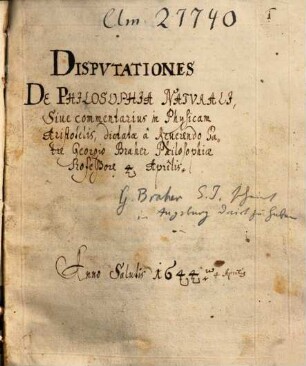 Clm 27740
DISPVTATIONES
DE PHILOSOPHIA NATVRALI,
Siue commentarius in Physicam
Aristotelis, dictata à Reuerendo Pa-
tre Georgio Braher Philosophiæ
Professore 4 Aprilis.
G. Braher S.J. scheint
in Augsburg
Anno Salutis 1644